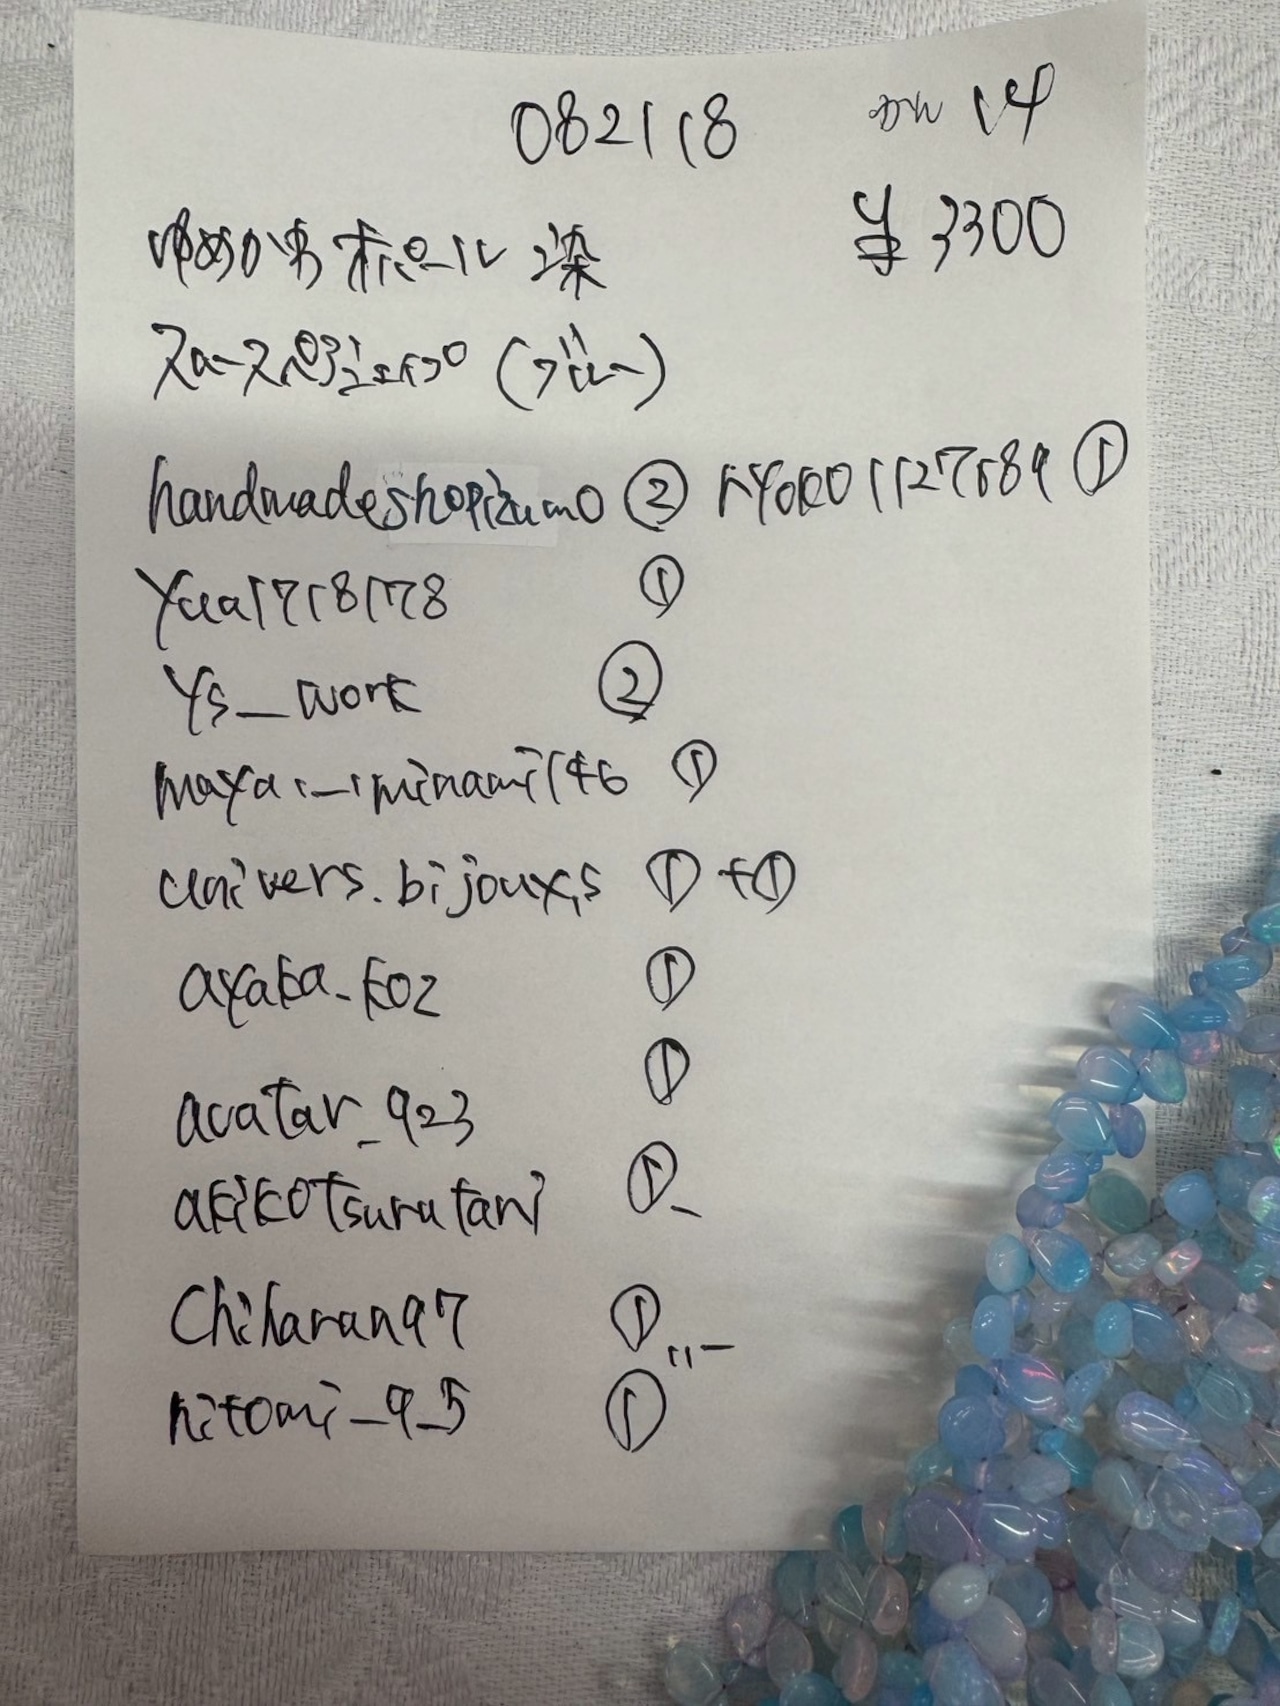 082118 14
ゆめかわオパール 染 ¥3300
スムースペアシェイプ (ブルー)
handmadeshopizumo ② kyoko01127689 ①
Yua1718178 ①
Ys_work ②
maya._.minami146 ①
univers.bijoux.s ① + ①
ayaka_koz ①
avatar_923 ①
akikotsurutani ①
Chiharan97 ①
hitomi_9_5 ①